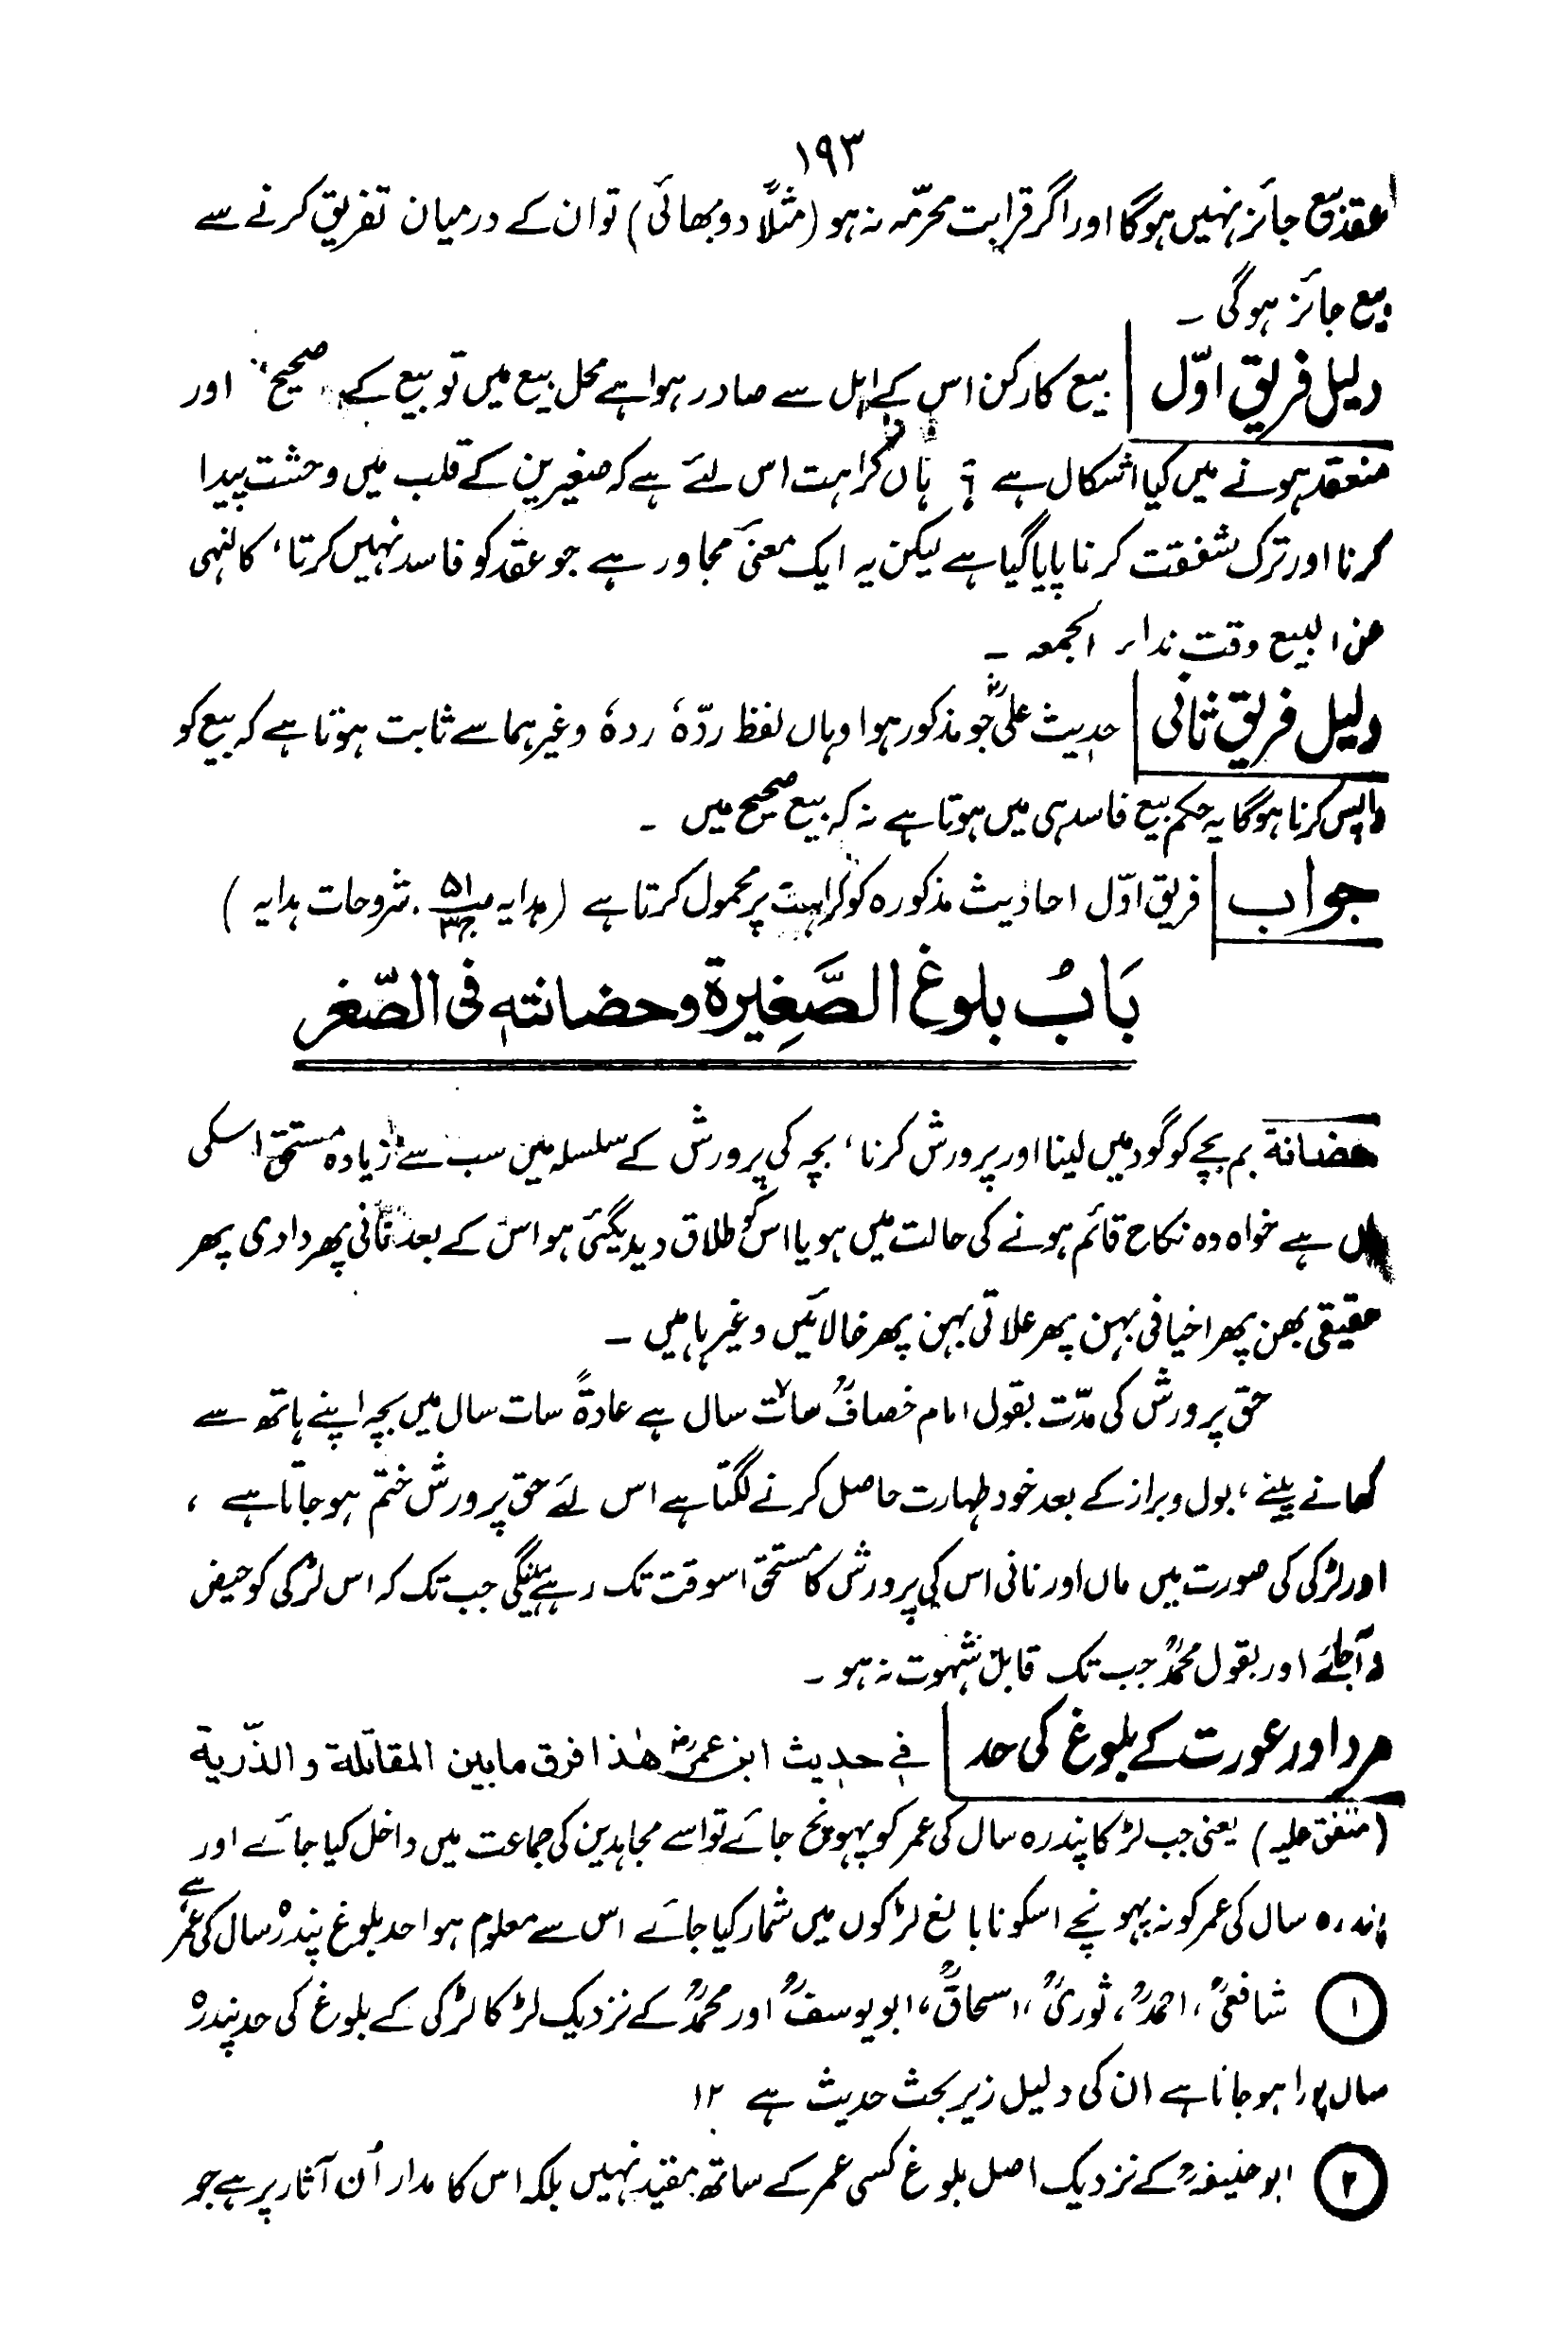 ۱۹۳
عقد بیع جائز نہیں ہوگا اور اگر قرابت محرّمہ نہ ہو (مثلاً دو بھائی) تو ان کے درمیان تفریق کرنے سے
بیع جائز ہوگی ۔
دلیل فریق اوّل بیع کا رکن اس کے اہل سے صادر ہوا ہے محل بیع میں تو بیع کے صحیح اور
منعقد ہونے میں کیا اشکال ہے ؟ ہاں کراہت اس لئے ہے کہ صغیرین کے قلب میں وحشت پیدا
کرنا اور ترک شفقت کرنا پایا گیا ہے لیکن یہ ایک معنیٔ مجاور ہے جو عقد کو فاسد نہیں کرتا، کالنہی
عن البیع وقت نداء الجمعہ ۔
دلیل فریق ثانی حدیث علیؓ جو مذکور ہوا وہاں لفظ ردّہٗ ردہٗ وغیرہما سے ثابت ہوتا ہے کہ بیع کو
واپس کرنا ہوگا یہ حکم بیع فاسد ہی میں ہوتا ہے نہ کہ بیع صحیح میں ۔
جواب فریق اوّل احادیث مذکورہ کو کراہت پر محمول کرتا ہے (ہدایہ ص ۵۱ ج۳، شروحات ہدایہ)
بَابُ بلوغ الصَّغِيرة وحضانته فى الصّغر
حضانة بم بچے کو گود میں لینا اور پرورش کرنا، بچہ کی پرورش کے سلسلہ میں سب سے زیادہ مستحق اسکی
ماں ہے خواہ وہ نکاح قائم ہونے کی حالت میں ہو یا اس کو طلاق دیدیگئی ہو اس کے بعد نانی پھر دادی پھر
حقیقی بھن پھر اخیافی بہن پھر علاتی بہن پھر خالائیں وغیرہا ہیں ۔
حق پرورش کی مدّت بقول امام خصافؒ سات۷ سال ہے عادۃً سات سال میں بچہ اپنے ہاتھ سے
کھانے پینے، بول و براز کے بعد خود طہارت حاصل کرنے لگتا ہے اس لئے حق پرورش ختم ہو جاتا ہے ،
اور لڑکی کی صورت میں ماں اور نانی اس کی پرورش کا مستحق اسوقت تک رہینگی جب تک کہ اس لڑکی کو حیض
نہ آجائے اور بقول محمدؒ جب تک قابل شہوت نہ ہو ۔
مرد اور عورت کے بلوغ کی حد فے حديث ابن عمرؓ هٰذا فرق مابين المقاتلة والذّرية
(متفق علیہ) یعنی جب لڑکا پندرہ سال کی عمر کو پہونچ جائے تو اسے مجاہدین کی جماعت میں داخل کیا جائے اور
پندرہ سال کی عمر کو نہ پہونچے اسکو نابالغ لڑکوں میں شمار کیا جائے اس سے معلوم ہوا حد بلوغ پندرہ سال کی عمر ہے
۱ شافعیؒ، احمدؒ، ثوریؒ، اسحاقؒ، ابو یوسفؒ اور محمدؒ کے نزدیک لڑکا لڑکی کے بلوغ کی حد پندرہ
سال پورا ہو جانا ہے ان کی دلیل زیر بحث حدیث ہے ۱۲
۲ ابو حنیفہؒ کے نزدیک اصل بلوغ کسی عمر کے ساتھ مقید نہیں بلکہ اس کا مدار اُن آثار پر ہے جو